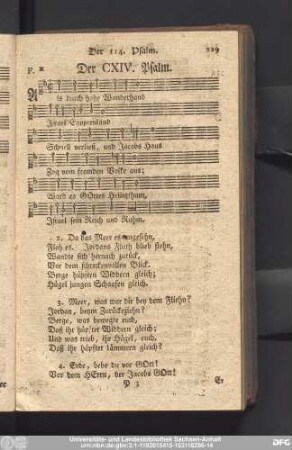 Der 114. Psalm. 229
F. * Der CXIV. Psalm.
Als durch hohe Wunderhand
Israel Egyptenland
Schnell verließ, und Jacobs Haus
Zog vom fremden Volke aus;
Ward es GOttes Heiligthum,
Israel sein Reich und Ruhm.
2. Da das Meer es angesehn,
Floh es. Jordans Fluth blieb stehn,
Wandte sich hernach zurück,
Vor dem schreckenvollen Blick.
Berge hüpften Widdern gleich;
Hügel jungen Schaafen gleich.
3. Meer, was war dir bey dem Fliehn?
Jordan, beym Zurückeziehn?
Berge, was bewegte euch,
Daß ihr hüpftet Widdern gleich;
Und was trieb, ihr Hügel, euch,
Daß ihr hüpftet Lämmern gleich?
4. Erde, bebe du vor GOtt!
Vor dem HErrn, der Jacobs GOtt!
P 3 Er
Universitäts- und Landesbibliothek Sachsen-Anhalt
urn:nbn:de:gbv:3:1-1192015415-153116286-14
DFG